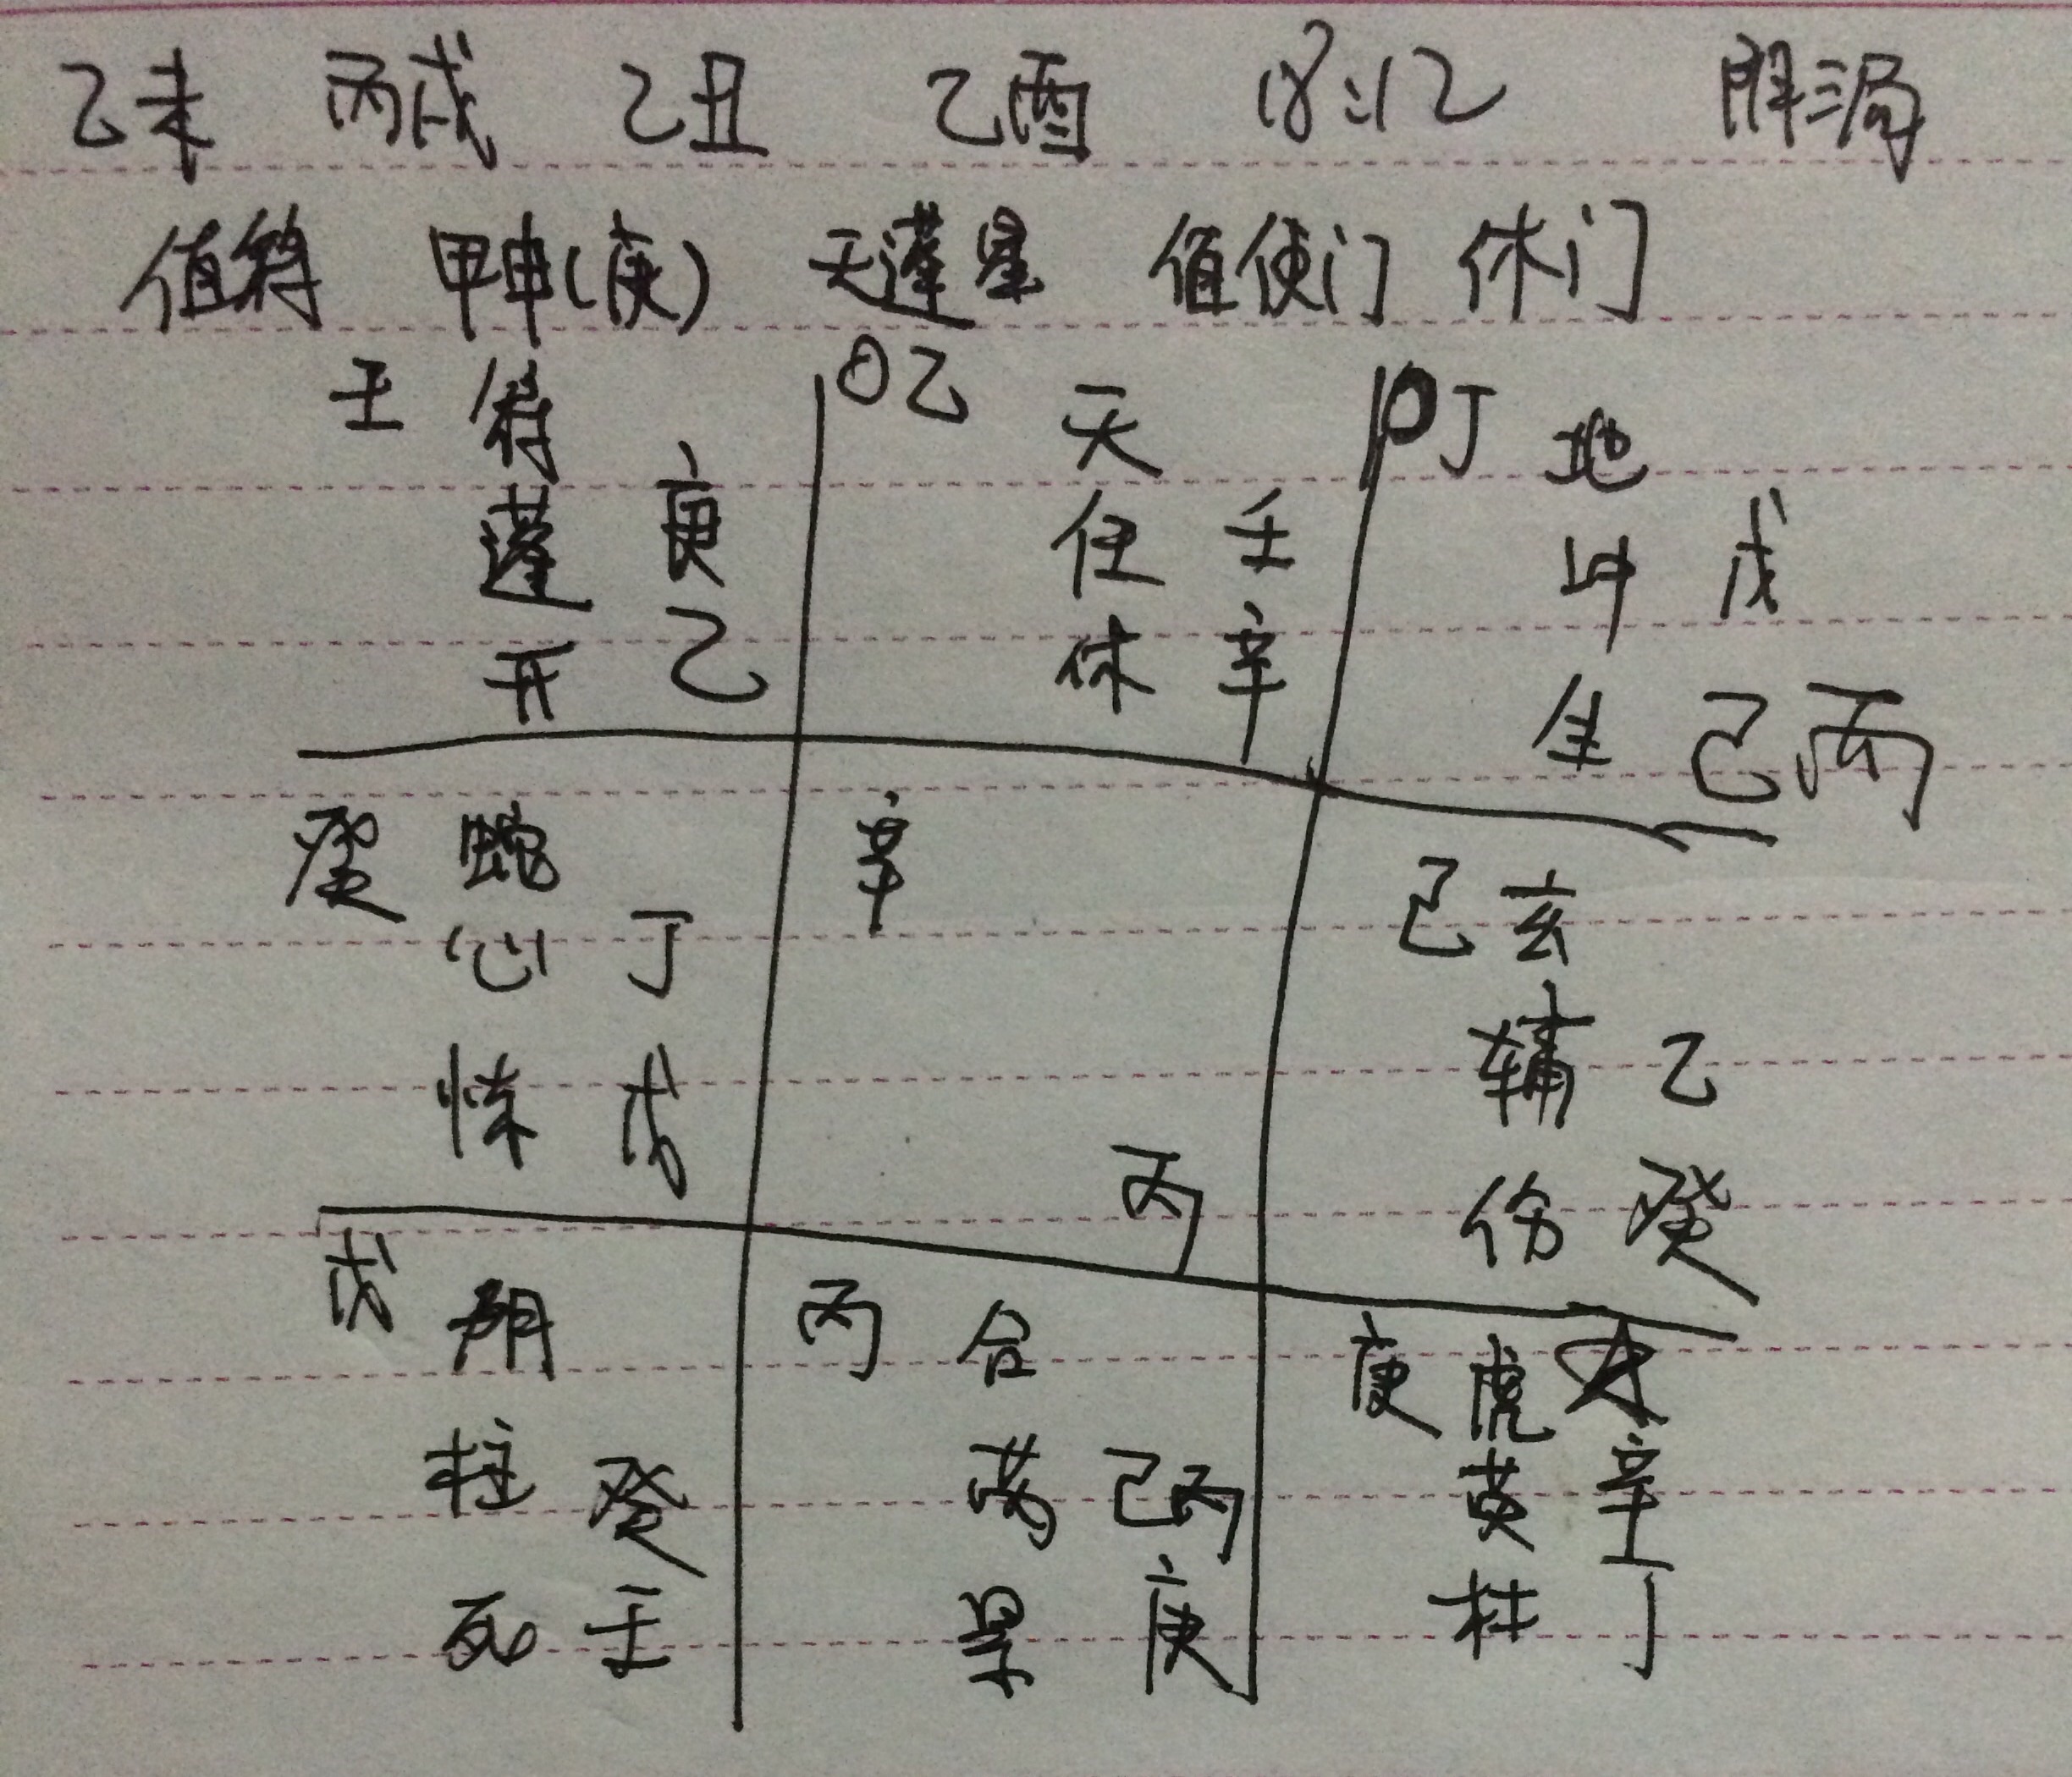 乙未 丙戌 乙丑 乙酉 18:12 阴三局
值符 甲申(庚) 天蓬星 值使门 休门
壬 符 〇乙 天 〇丁 地
蓬 庚 任 壬 芮 戊
开 乙 休 辛 生 己丙
癸 蛇 辛 己 玄
心 丁 辅 乙
惊 戊 丙 伤 癸
戊 阴 丙 合 庚 虎
柱 癸 芮 己丙 英 辛
死 壬 景 庚 杜 丁